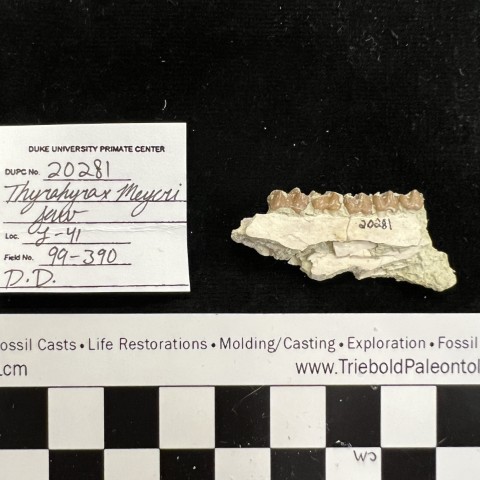 DUKE UNIVERSITY PRIMATE CENTER
DUPC No. 20281
Thyrohyrax Meyeri
jaw
Loc. L-41
Field No. 99-390
D.D.
20281
ossil Casts • Life Restorations • Molding/Casting • Exploration • Fossil
cm
www.TrieboldPaleontol
CM